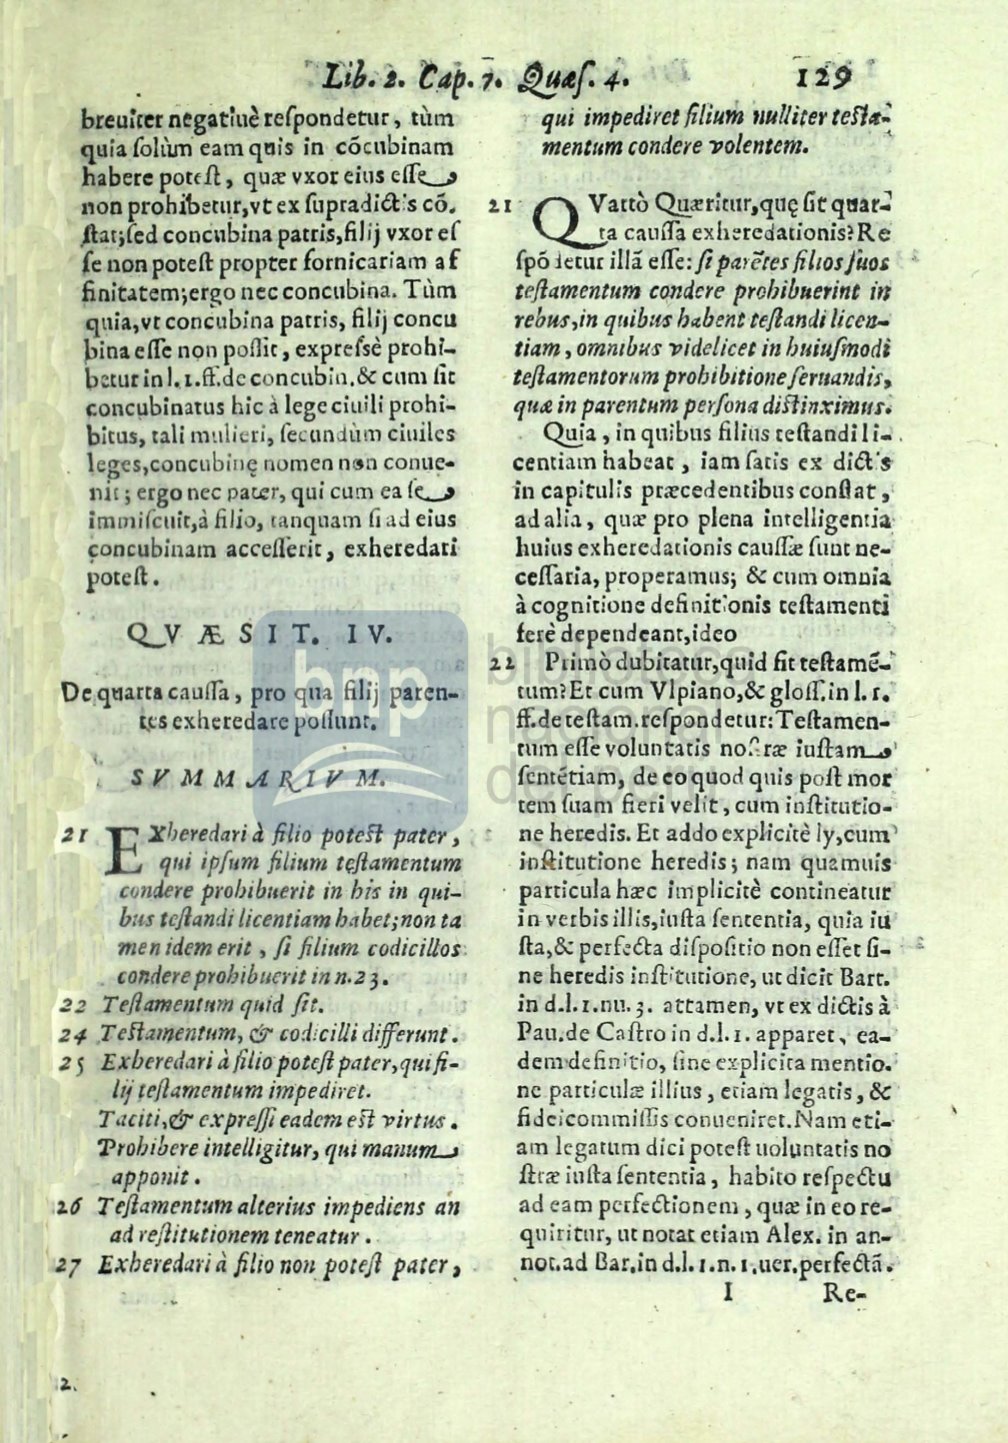 Lib. 2. Cap. 7. Quæſ. 4. 129
breuiter negatiuè reſpondetur, tùm
quia ſolùm eam quis in cõcubinam
habere poteſt, quæ vxor eius eſſe
non prohibetur, vt ex ſupradictis cõ.
ſtat; ſed concubina patris, filij vxor eſ
ſe non poteſt propter fornicariam af
finitatem; ergo nec concubina. Tùm
quia, vt concubina patris, filij concu
bina eſſe non poſſit, expreſsè prohi-
betur in l. 1. ff. de concubin. & cum ſit
concubinatus hic à lege ciuili prohi-
bitus, tali mulieri, ſecundùm ciuiles
leges, concubinę nomen non conue-
nit; ergo nec pater, qui cum ea ſe
immiſcuit, à filio, tanquam ſi ad eius
concubinam acceſſerit, exheredari
poteſt.
QVÆSIT. IV.
De quarta cauſſa, pro qua filij paren-
tes exheredare poſſunt.
SVMMARIVM.
21 EXheredari à filio poteſt pater,
qui ipſum filium teſtamentum
condere prohibuerit in his in qui-
bus teſtandi licentiam habet; non ta
men idem erit, ſi filium codicillos
condere prohibuerit in n. 23.
22 Teſtamentum quid ſit.
24 Teſtamentum, & codicilli differunt.
25 Exheredari à filio poteſt pater, qui fi-
lij teſtamentum impediret.
Taciti, & expreſſi eadem eſt virtus.
Prohibere intelligitur, qui manum
apponit.
26 Teſtamentum alterius impediens an
ad reſtitutionem teneatur.
27 Exheredari à filio non poteſt pater,
qui impediret filium nulliter teſta-
mentum condere volentem.
21 QVartò Quæritur, quę ſit quar-
ta cauſſa exheredationis? Re
ſpõdetur illã eſſe: ſi parẽtes filios ſuos
teſtamentum condere prohibuerint in
rebus, in quibus habent teſtandi licen-
tiam, omnibus videlicet in huiuſmodi
teſtamentorum prohibitione ſeruandis,
quæ in parentum perſona diſtinximus.
Quia, in quibus filius teſtandi li-
centiam habeat, iam ſatis ex dictis
in capitulis præcedentibus conſtat,
ad alia, quæ pro plena intelligentia
huius exheredationis cauſſæ ſunt ne-
ceſſaria, properamus; & cum omnia
à cognitione definitionis teſtamenti
ferè dependeant, ideo
22 Primò dubitatur, quid ſit teſtamẽ-
tum? Et cum Vlpiano, & gloſſ. in l. 1.
ff. de teſtam. reſpondetur: Teſtamen-
tum eſſe voluntatis noſtræ iuſtam
ſentẽtiam, de eo quod quis poſt mor
tem ſuam fieri velit, cum inſtitutio-
ne heredis. Et addo explicitè ly, cum
inſtitutione heredis; nam quamuis
particula hæc implicitè contineatur
in verbis illis, iuſta ſententia, quia iu
ſta, & perfecta diſpoſitio non eſſet ſi-
ne heredis inſtitutione, ut dicit Bart.
in d. l. 1. nu. 3. attamen, vt ex dictis à
Pau. de Caſtro in d. l. 1. apparet, ea-
dem definitio, ſine explicita mentio.
ne particulæ illius, etiam legatis, &
fideicommiſſis conueniret. Nam eti-
am legatum dici poteſt uoluntatis no
ſtræ iuſta ſententia, habito reſpectu
ad eam perfectionem, quæ in eo re-
quiritur, ut notat etiam Alex. in an-
not. ad Bar. in d. l. 1. n. 1. uer. perfectã.
I Re-
2.
bnp biblioteca
nacional
del perú